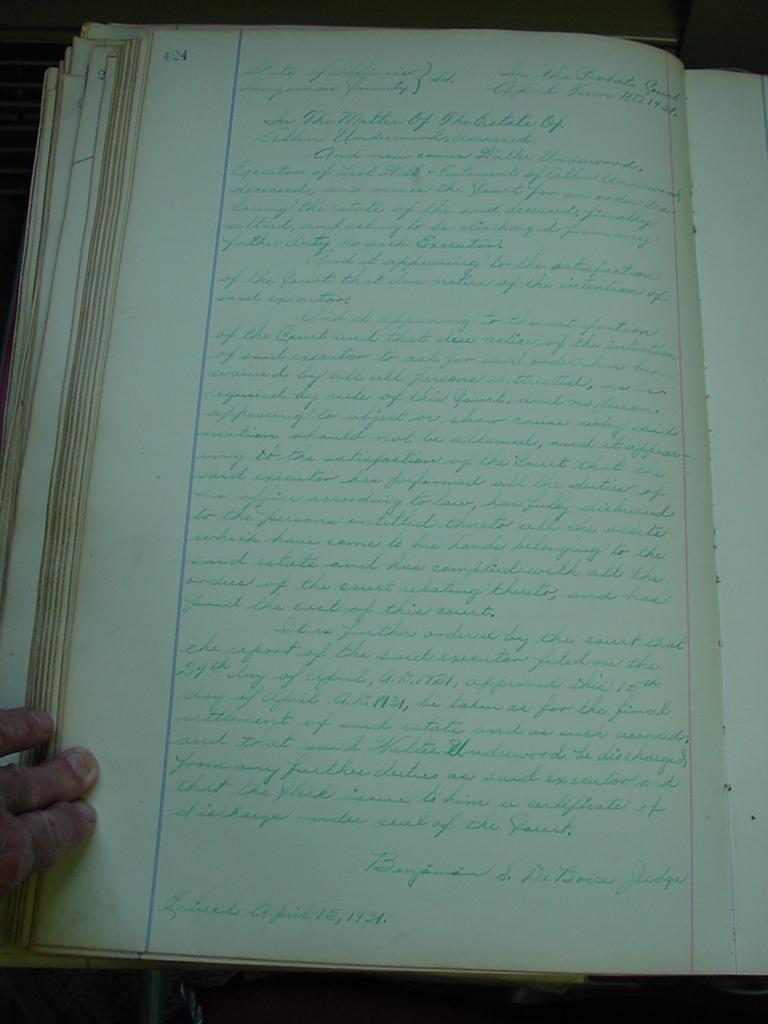 424
State of Illinois } ss. In the Probate Court
Sangamon County } April Term A.D. 1931.
In The Matter Of The Estate Of
Allen Underwood, deceased.
And now comes Walter Underwood,
Executor of Last Will & Testament of Allen Underwood,
deceased, and moves the Court for an order dec
laring the estate of the said deceased, finally
settled, and asking to be discharged from any
futher duty as such Executor.
And it appearing to the satisfaction
of the Court that due notice of the intention of
said executor.
And it appearing to the satisfaction
of the Court and that due notice of the intention
of said executor to ask for said order has been
waived by all all persons interested, as is
required by rule of this Court, and no person
appearing to object or show cause why said
motion should not be allowed, and it appear-
ing to the satisfaction of the Court that the
said executor has performed all the duties of
his office according to law, has fully disbursed
to the persons entitled thereto all the assets
which have come to his hands belonging to the
said estate and has complied with all the
orders of the court relating thereto, and has
paid the cost of this court.
It is further ordered by the court that
the report of the said executor filed on the
29th day of April, A.D. 1921, approved this 15th
day of April A.D. 1931, be taken as for the final
settlement of said estate and as such recorded;
and that said Walter Underwood be discharged
from any further duties as said executor and
that the Clerk issue to him a certificate of
discharge under seal of the Court.
Benjamin S. DeBoice Judge
Entered April 15, 1931.